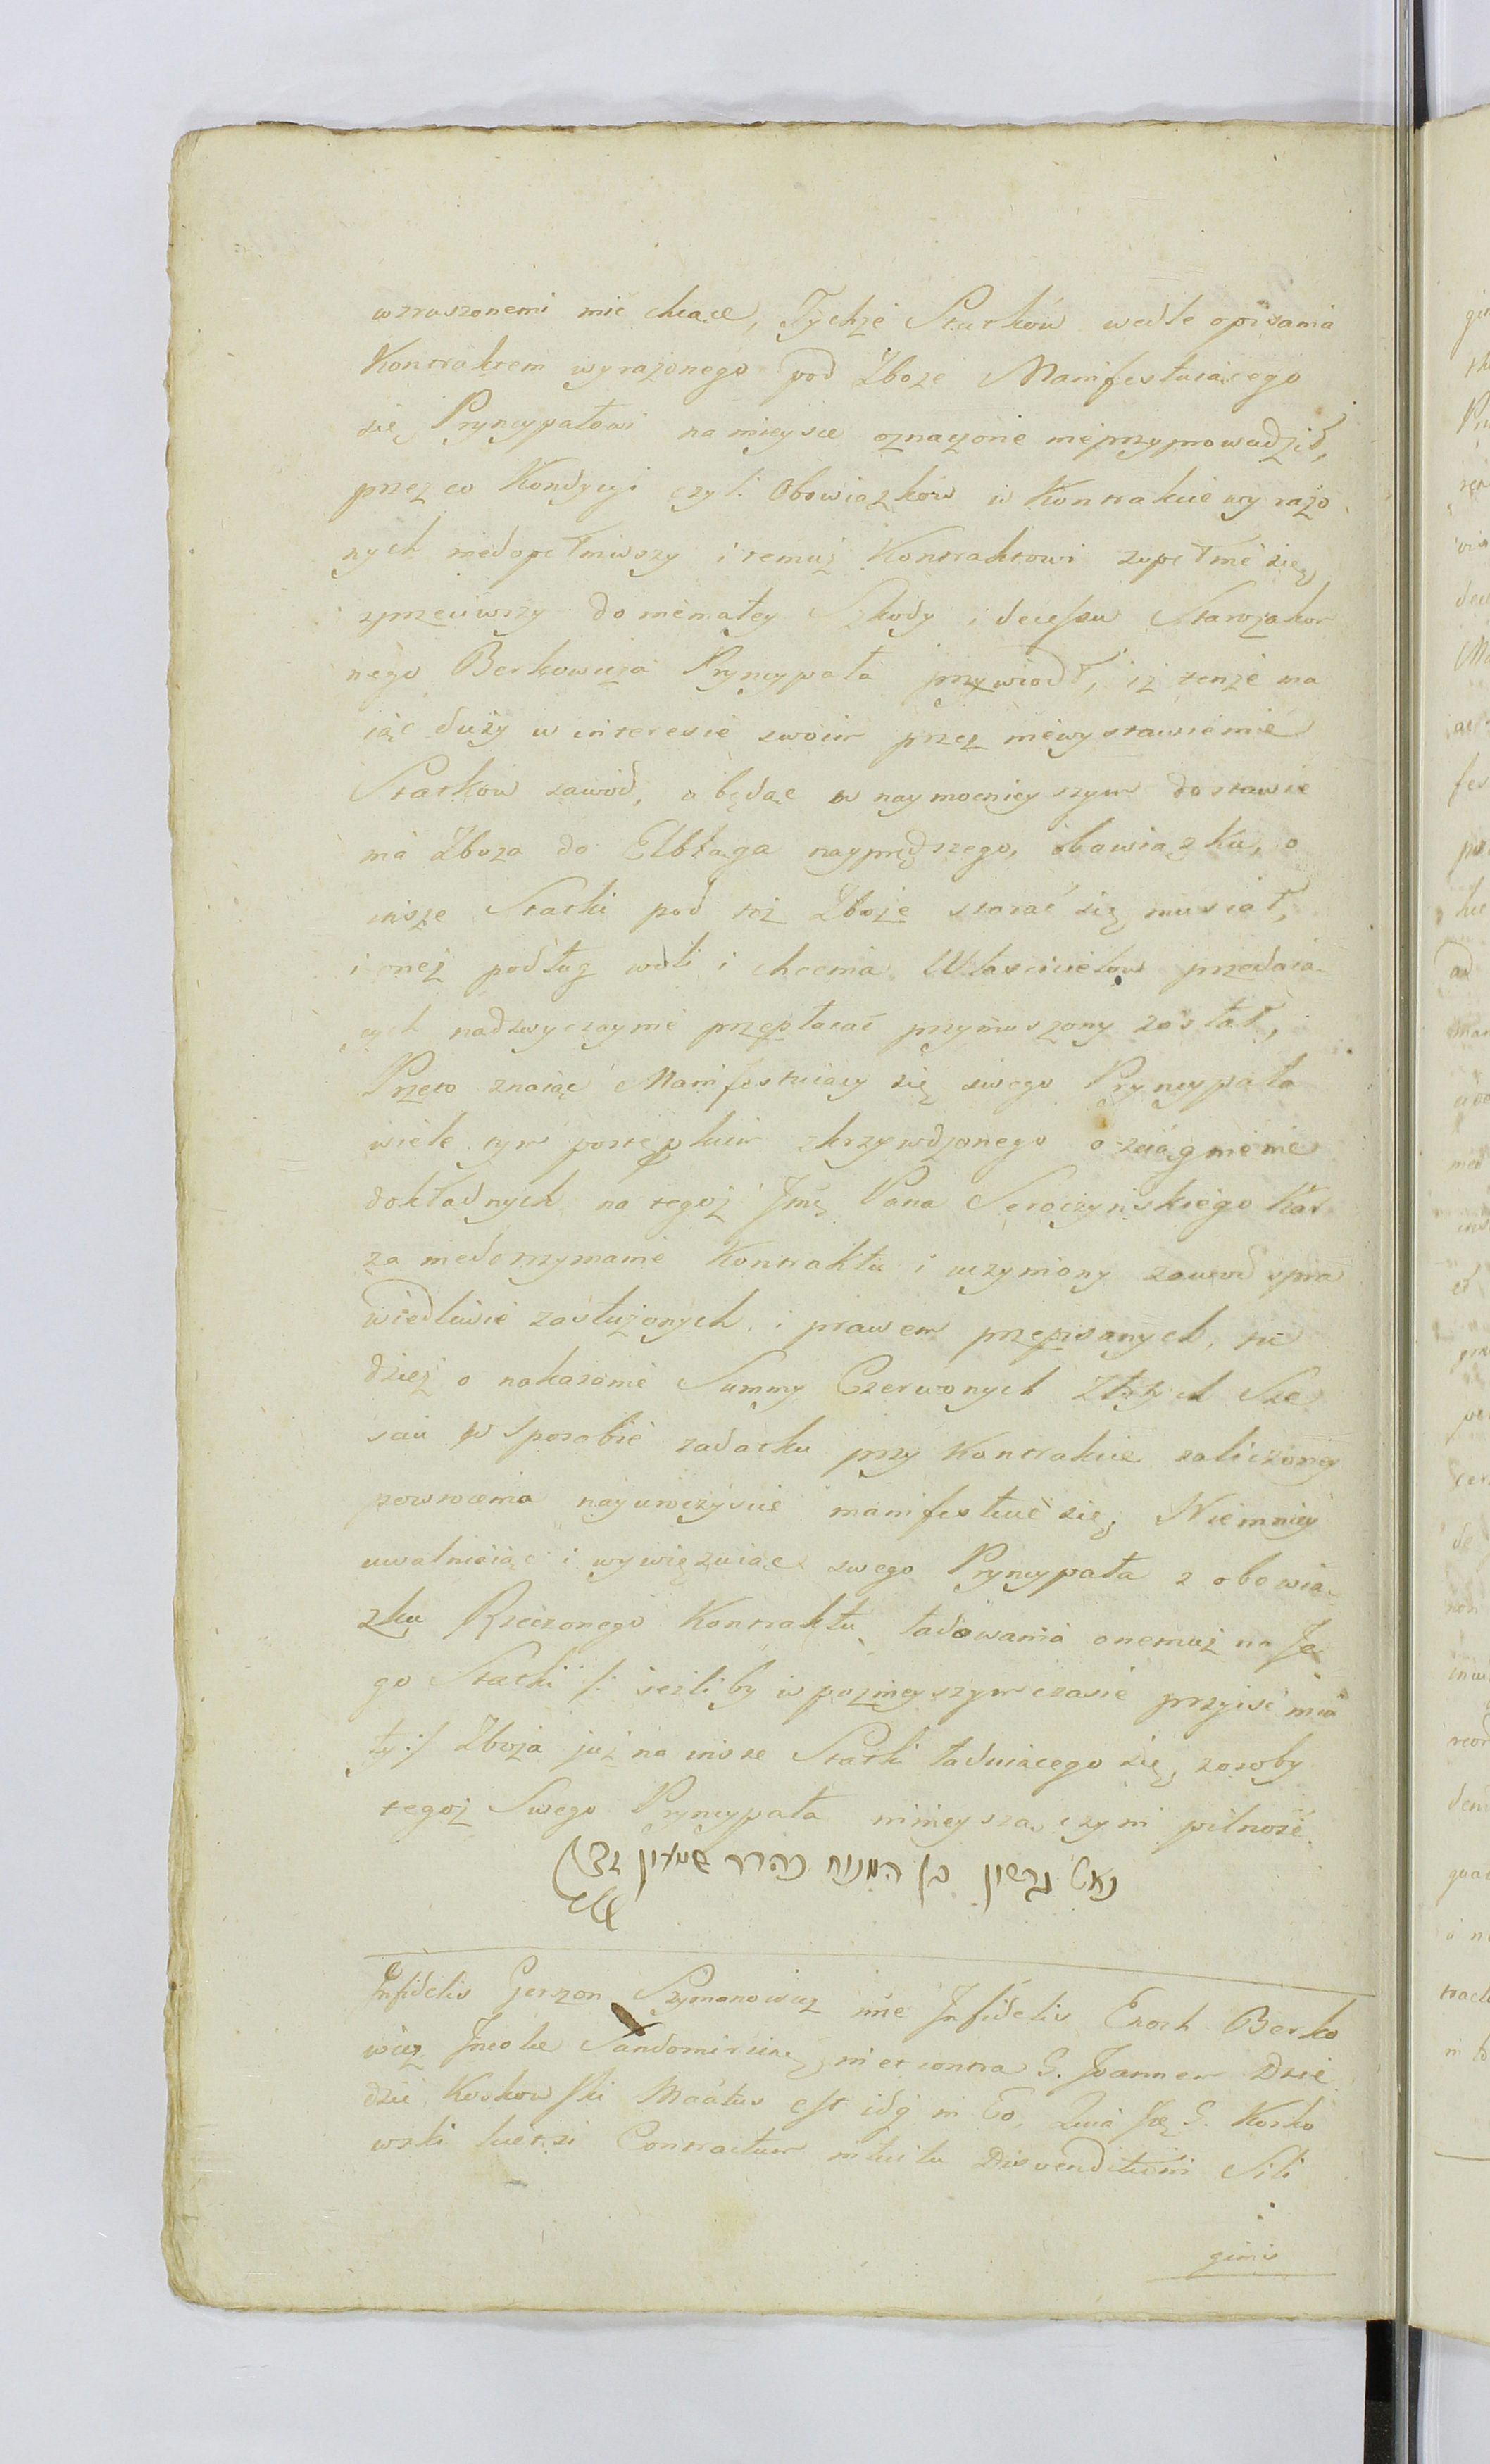 wzruszonemi mieć chcąc, Tychże Statków wedle opisania
Kontraktem wyrażonego pod Zboże Manifestuiącego
się Pryncypałowi na mieysce oznaczone nieprzyprowadził,
przez co Kondycyi czyli Obowiązków w Kontrakcie wyrażo
nych niedopełniwszy i temuż Kontraktowi zupełnie się
zprzeciwiwszy do niemałey Szkody i decessu Starozakon
nego Berkowicza Pryncypała przywiodł, iż tenże ma
iąc duży w interesie swoim przez niewystawienie
Statków zawód, a będąc w naymocnieyszym dostawie
nia Zboża do Elbląga nayprędszego, obowiązku, o
insze Statki pod też Zboże starać się musiał,
i oneż podług woli i chcenia Właścicielów przedaią
cych nadzwyczaynie przepłacać przymuszony został,
Przeto znaiąc Manifestuiący się swego Pryncypała
wiele tym postępkiem skrzywdzonego o ściągnienie
dokładnych na tegoż Jmć Pana Seroczyńskiego Kar
za niedotrzymanie Kontraktu i uczyniony zawód spra
wiedliwie zasłużonych i prawem przepisanych, tu
dzież o nakazanie Summy Czerwonych Złotych Sze
ściu w sposobie zadatku przy Kontrakcie zaliczoney
powrócenia nayuroczyście manifestuie się, Niemniey
uwalniaiąc i wywięzuiąc swego Pryncypała z obowią
zku Rzeczonego Kontraktu ładowania onemuż na Je
go Statki /: jeżliby w poźnieyszym czasie przyiść mia
ły :/ Zboża już na insze Statki ładuiącego się, z osoby
tegoż Swego Pryncypała nineyszą czyni pilność.
נאם גרשון בן המנוח כהרר שמעון
Infidelis Gerzon Szymonowicz nne Infidelis Enoch Berko
wicz Incolae Sandomiriensis in et contra G. Joannem Dzie
dzic Koskowski Maatus est idq in Eo, Quia G. Kosko
wski Contractum intuitu Disvenditionis Sili
ginis